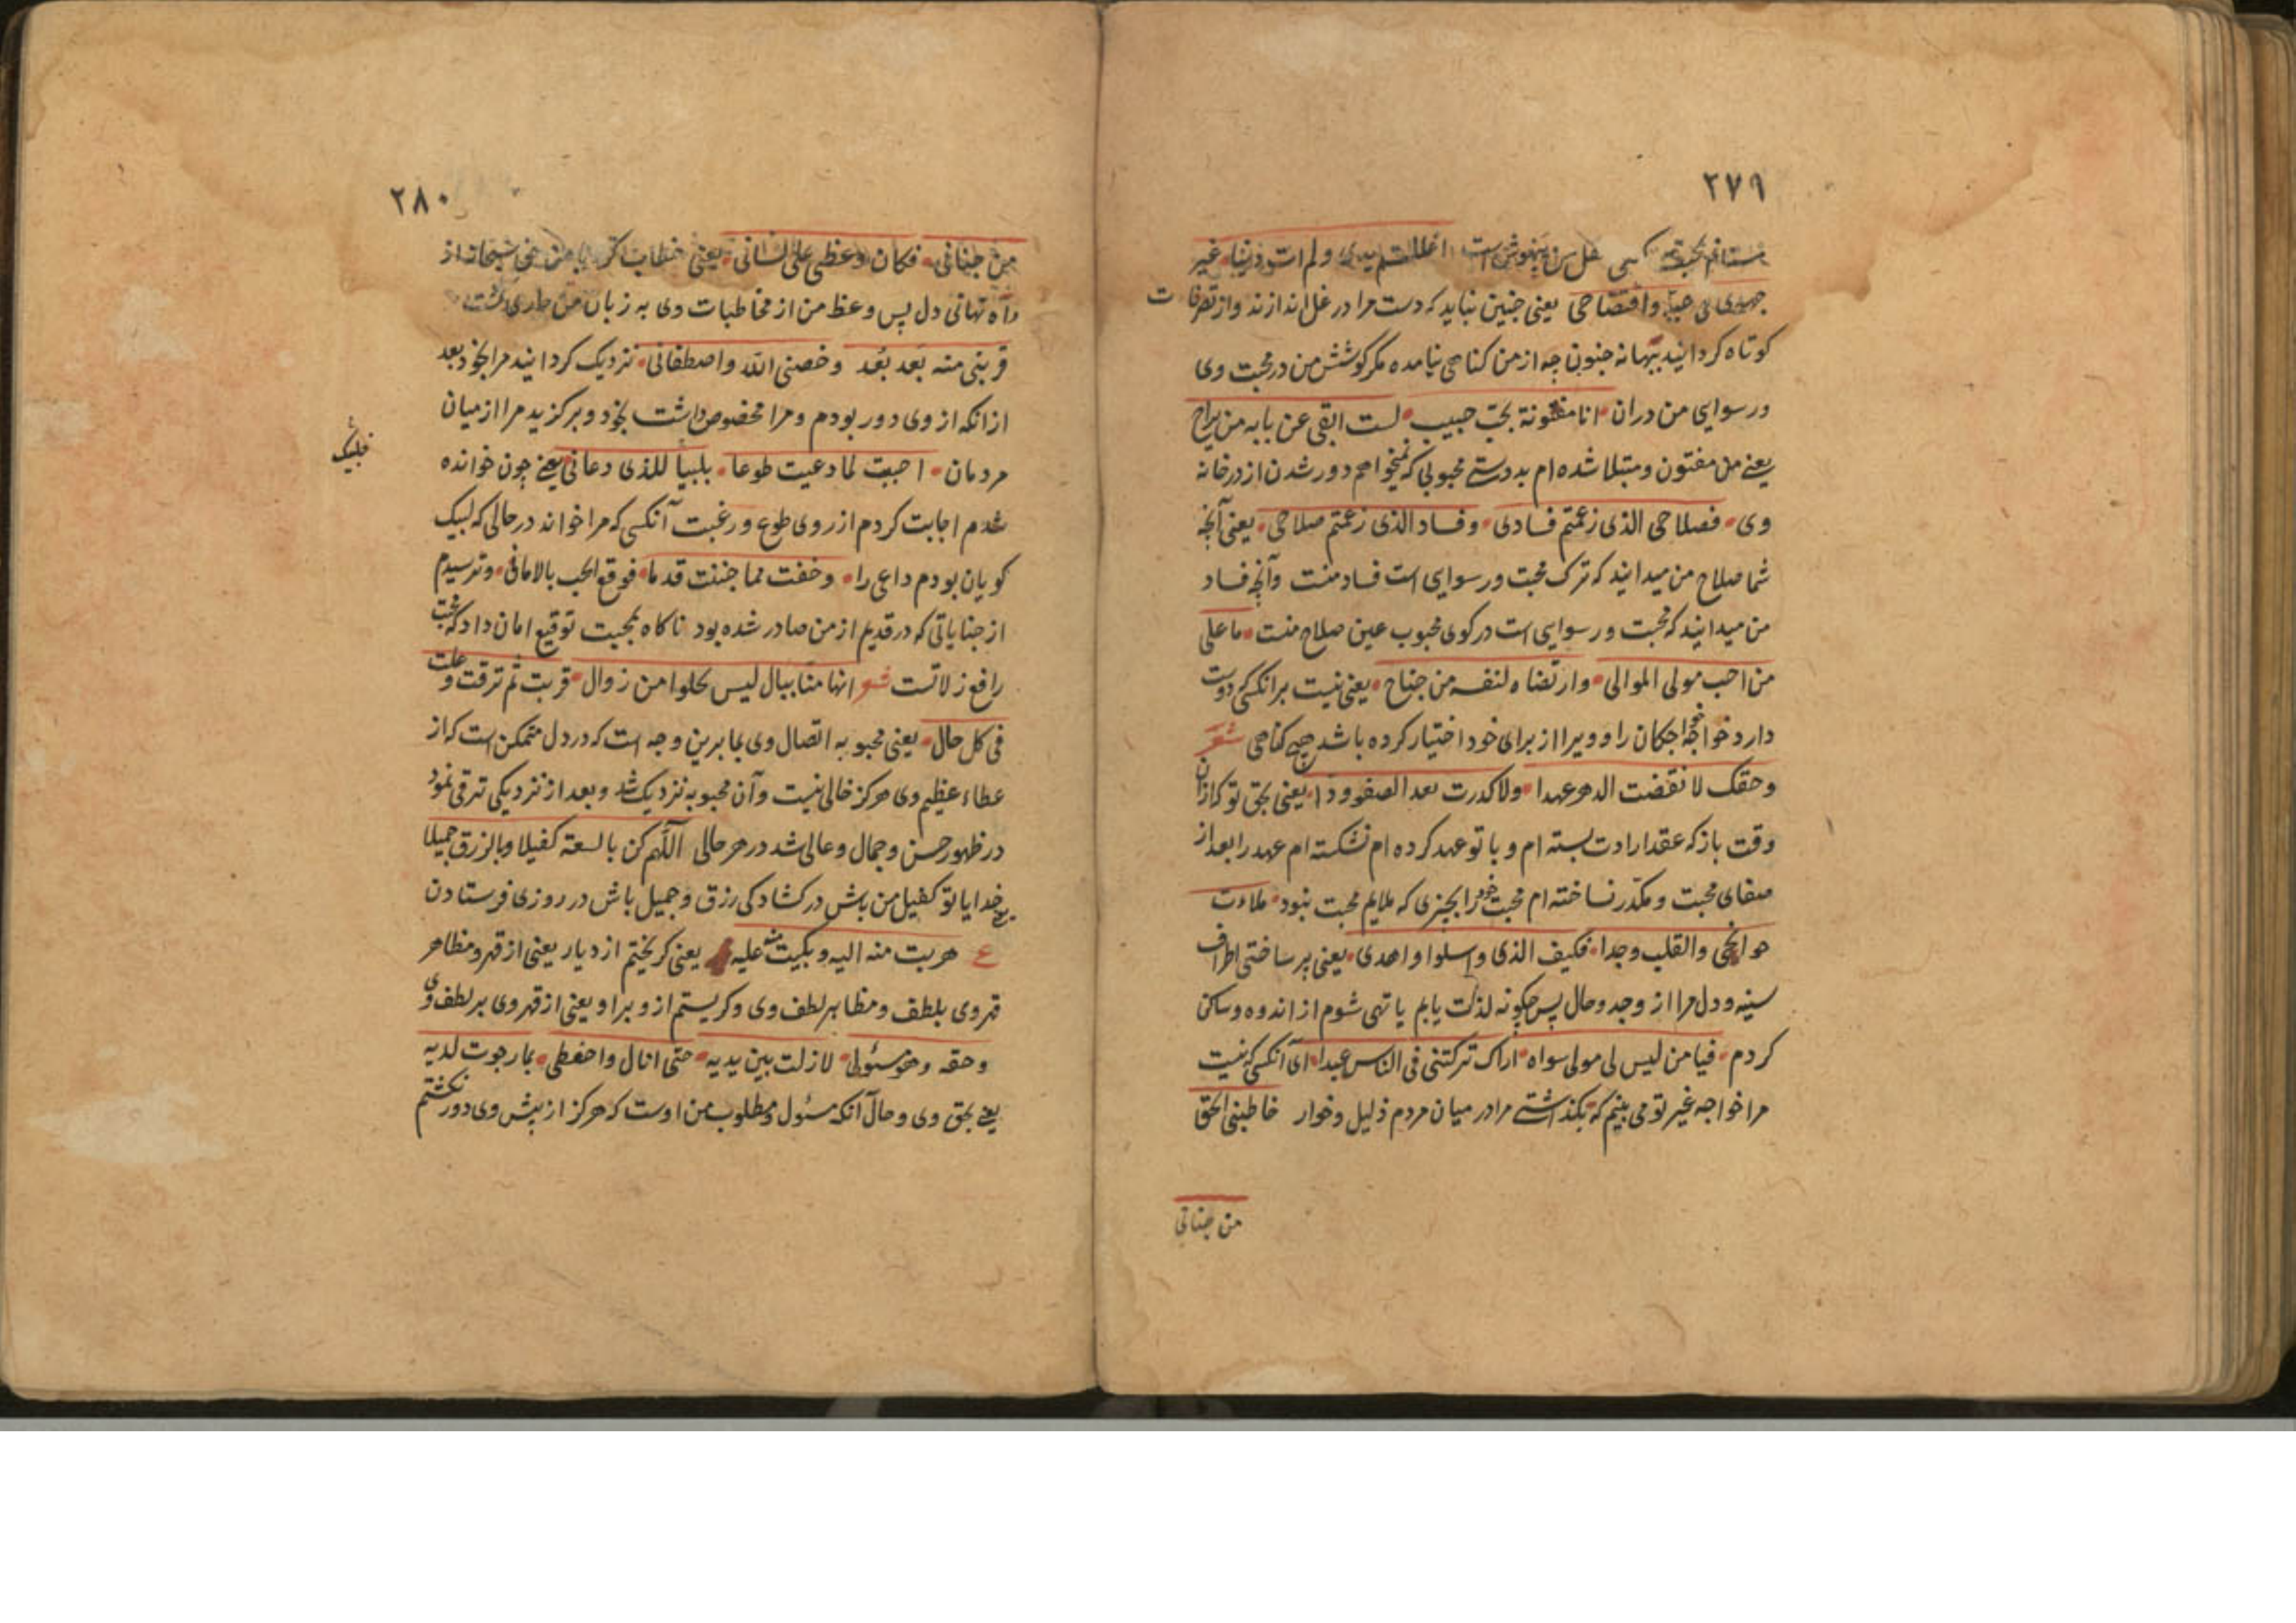 ٢٧٩
مستانم بحبه اغللتم یدی ولم ات ذنبا غیر
جهدی فی حبه وافتضاحی یعنی چنین نباید که دست مرا در غل اندازند واز تصرفات
کوتاه کردانید ببهانه جنون چه از من کناهی نیامده مکر کوشش من در محبت وی
ورسوایی من دران انا مفتونة بحب حبیب لست ابقی عن بابه من براح
یعنی من مفتون ومبتلا شده ام بدوستی محبوبی که نمیخواهم دور شدن از در خانه
وی فصلاحی الذی زعمتم فسادی وفساد الذی زعمتم صلاحی یعنی آنچه
شما صلاح من میدانید که ترک محبت ورسوایی است فساد منست وآنچه فساد
من میدانید که محبت ورسوایی است در کوی محبوب عین صلاح منست ما علی
من احب مولی الموالی وارتضاه لنفسه من جناح یعنی نیست بر انکسی که دوست
دارد خواجه خواجکان را وویرا از برای خود اختیار کرده باشد هیچ کناهی شعر
وحقک لا نقضت الدهر عهدا ولا کدرت بعد الصفو ودا یعنی بحق تو که از ان
وقت باز که عقد ارادت بسته ام وبا تو عهد کرده ام نشکسته ام عهد را بعد از
صفای محبت ومکدر نساخته ام محبت خود را بچیزی که ملایم محبت نبود ملات
جوانحی والقلب وجدا فکیف الذی واسلوا واهدی یعنی پر ساختی اطراف
سینه ودل مرا از وجد وحال پس چکونه لذت یابم یا تهی شوم از اندوه وساکن
کردم فیا من لیس لی مولی سواه اراک ترکتنی فی الناس عبدا ای آنکسی که نیست
مرا خواجه غیر تو می بینم که بکذاشتی مرا در میان مردم ذلیل وخوار خاطبنی الحق
من جنانی
٢٨٠
من جنانی فکان وعظی علی لسانی یعنی خطاب کرد با من حق سبحانه از
راه نهانی دل پس وعظ من از مخاطبات وی به زبان من جاری کشت
قربنی منه بعد بُعد وخصنی الله واصطفانی نزدیک کردانید مرا بخود بعد
ازانکه از وی دور بودم ومرا مخصوص داشت بخود وبرکزید مرا از میان
مردمان اجبت لما دعیت طوعا ملبیا للذی دعانی یعنی چون خوانده
شدم اجابت کردم از روی طوع ورغبت آنکسی که مرا خواند در حالی که لبیک
کویان بودم داعی را وخفت مما جنیت قدما فوقع الحب بالامانی وترسیدم
از جنایاتی که در قدیم از من صادر شده بود ناکاه محبت توقیع امان داد که محبت
رافع زلاتست شعر انها منا ببال لیس یخلوا من زوال قربت ثم ترقت وعلت
فی کل حال یعنی محبوبه اتصال وی بما برین وجه است که در دل متمکن است که از
عطاء عظیم وی هرکز خالی نیست وآن محبوبه نزدیک شد وبعد از نزدیکی ترقی نمود
در ظهور حسن وجمال وعالی شد در هر حالی اللهم کن بالسعة کفیلا وبالرزق جمیلا
یعنی خدایا تو کفیل من باش در کشادکی رزق وجمیل باش در روزی فرستادن
ع هربت منه الیه وبکیت منه علیه یعنی کریختم از دیار یعنی از قهر ومظاهر
قهر وی بلطف ومظاهر لطف وی وکریستم ازو برا و یعنی از قهر وی بر لطف وی
وحقه وهو سئولی لا زلت بین یدیه حتی انال واحظی بما رجوت لدیه
یعنی بحق وی وحال آنکه مسئول ومطلوب من اوست که هرکز از پیش وی دور نکشتم